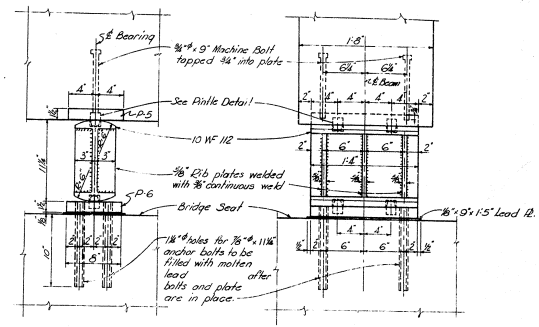 ℄ Bearing
¾"ᶲ x 9" Machine Bolt
tapped ¾" into plate
1'-8"
6¼" 6¼"
℄ Beam
4" 4"
See Pintle Detail
2" 4" 4" 4" 4" 2"
P-5
10 WF 112
2" 6" 6" 2"
1'-4"
3" 3"
11¼"
⅝" Rib plates welded
with ⅜" continuous weld
P-6
Bridge Seat
⅛" x 9" x 1'-5" Lead Pl.
4" 4"
2" 2" 2" 2"
½" 2" 6" 6" 2" ½"
8"
10"
1¼"ᶲ holes for ⅞"ᶲ x 11¼"
anchor bolts to be
filled with molten
lead after
bolts and plate
are in place.